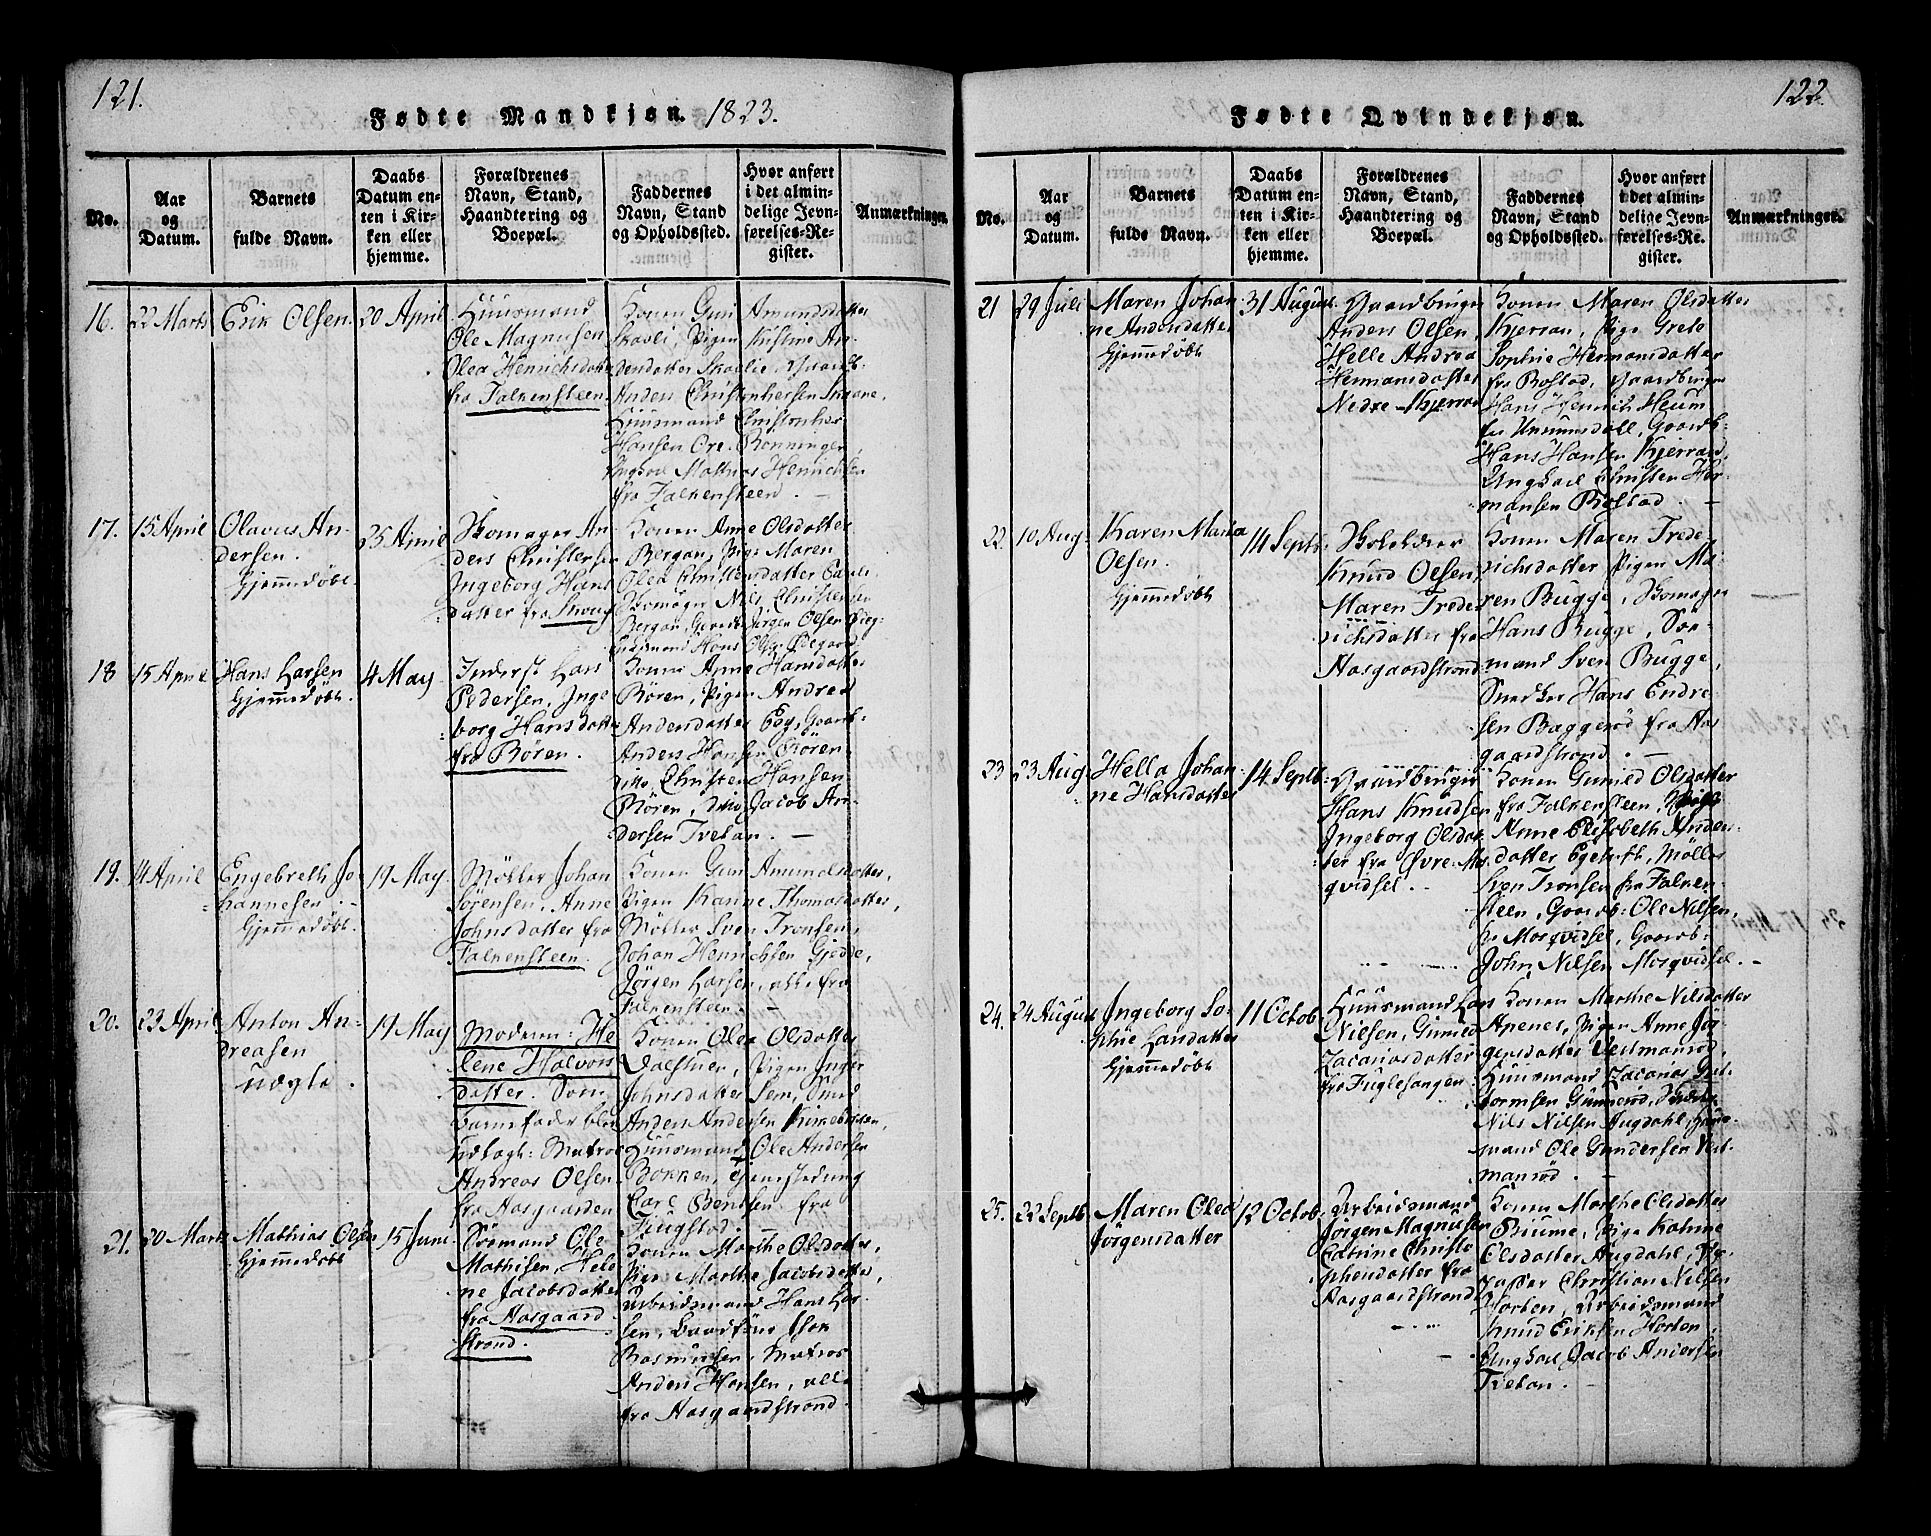 121.
Fødte Mandkjøn. 1823.
No.
Aar
og
Datum.
Barnets
fulde Navn.
Daabs
Datum en-
ten i Kir-
ken eller
hjemme.
Forældrenes
Navn, Stand,
Haandtering og
Boepæl.
Faddernes
Navn, Stand
og Opholdssted.
Hvor anført
i det almin-
delige Jevn-
førelses-Re-
gister.
Anmærkninger.
16.
22 Marts
Erik Olsen.
20 April
Huusmand
Ole Magnusen
Olea Henrichsdatter
fra Falkensteen.
Konen Guri Amundsdatter
Skavli, Pigen Kistine An-
dersdatter Skavlie, Gaardb.
Anders Christophersen Skaane,
Huusmand Christopher
Hansen Øre. Rønningen
Ungkarl Mathias Henrichsen
fra Falkensteen. —
17.
15 April
Olavus An-
dersen.
Hjemmedøbt
25 April
Skomager An-
ders Christensen
Ingeborg Hans
datter fra Skoug
Konen Anne Olsdatter
Bergan, Pige Maren
Olea Christensdatter
Skomager Nils Christensen
Bergan, Gaardb. Jørgen Olsen
Huusmand Hans Olsen
18
15 April
Hans Larsen
Hjemmedøbt.
4 May
Inderst Lars
Pedersen, Inge
borg Hansdatter
fra Røren.
Konen Anne Hansdatter
Røren, Pigen Andrea
Andersdatter Eeg, Gaardb-
Anders Hansen Røren
ditto, Christen Hansen
Røren, ditto Jacob An-
dersen Tvetan. —
19.
14 April
Engebreth Jo
hannesen.
Hjemmedøbt.
19 May
Møller Johan
Sørensen, Anne
Johnsdatter fra
Falkensteen.
Konen Guri Amundsdatter,
Pigen Karine Thomasdatter,
Møller Sven Tronsen,
Johan Henrichsen Gjedde,
Jørgen Larsen, alle fra
Falkensteen. —
20.
23 April
Anton An-
dreasen
uægte.
19 May
Moderen: He
lene Halvors
datter. Som
Barnefader blev
udlagt: Matros
Andreas Olsen
fra Aasgaarden
Konen Olea Olsdatter
Dalstuen, Pigen Inger
Johnsdatter Sem, Smed
Anders Andersen Kirkebakken,
Huusmand Ole Andersen
Bakken,
Carl Bendtsen fra
Fuugstad. —
21.
20 Marts
Mathias Olsen
Hjemmedøbt
15 Juni
Søemand Ole
Mathisen, Hele
ne Jacobsdatter
fra Aasgaard
strand.
Konen Marthe Olsdatter,
Pigen Marthe Jacobsdatter,
Arbeidsmand Hans Lar-
sen,
Rasmussen, Matros
Anders Hansen, alle
fra Aasgaardstrand.
122.
Fødte Qvindekjøn.
No.
Aar
og
Datum.
Barnets
fulde Navn.
Daabs
Datum en-
ten i Kir-
ken eller
hjemme.
Forældrenes
Navn, Stand,
Haandtering og
Boepæl.
Faddernes
Navn, Stand
og Opholdssted.
Hvor anført
i det almin-
delige Jevn-
førelses-Re-
gister.
Anmærkninger.
21
29 Juli
Maren Johan
ne Andersdatter
Hjemmedøbt
31 August
Gaardbruger
Anders Olsen,
Helle Andrea
Hermansdatter
Nedre Kjerran
Konen Maren Olsdatter
Kjerran, Pige Grete
Sophie Hermansdatter
fra Bostad, Gaardbruger
Hans Henrich Heum
fra Unnumsdall, Gaardb:
Hans Hansen Kjerran,
Ungkarl Christen Her-
mansen Bostad. —
22.
10 Aug:
Karen Maria
Olsen.
Hjemmedøbt
14 Septb:
Skoleholder
Knud Olsen,
Maren Frede
richsdatter fra
Aasgaardstrand
Konen Maren Frede
richsdatter Pigen Ma-
ren Bugge, Skomager
Hans Bugge, Søe-
mand Sven Bugge,
Snedker Hans Endre
sen Baggerød fra Aas
gaardstrand. —
23
23 Aug
Hella Johan
ne Hansdatter
14 Septb:
Gaardbruger
Hans Knudsen
Ingeborg Olsdat
ter fra Øvre-Mos
qvidsel.
Konen Gunild Olsdatter
fra Falkensteen, Pige
Anne Elisabeth Anders-
datter Egetveth, Møller
Sven Tronsen fra Falken-
steen, Gaardb: Ole Nilsen,
fra Mosqvidsel, Gaardb-
John Nilsen Mosqvidsel. —
24.
24 August
Ingeborg So-
phie Larsdatter
Hjemmedøbt
11 Octob
Huusmand Lars
Nilsen, Gunild
Zacariasdatter
fra Fuglesangen
Konen Marthe Nilsdatter
Apenes, Pigen Anne Jør-
gensdatter Vestmanrød,
Huusmand Zacarias Gut-
tormsen Gunnerød,
Nils Nilsen Augdahl, Huus-
mand Ole Gundersen Vest-
manrød. —
25.
22 Septb.
Maren Olea
Jørgensdatter
12 Octob.
Arbeidsmand
Jørgen Magnusen
Catrine Christo
phersdatter fra
Aasgaardstrand
Konen Marthe Olsdatter
Bruserne, Pige Karine
Olsdatter Augdahl,
Christian Nilsen
Horten, Arbeidsmand
Knud Eriksen Horten,
Ungkarl Jacob Andersen
Tvetan. —